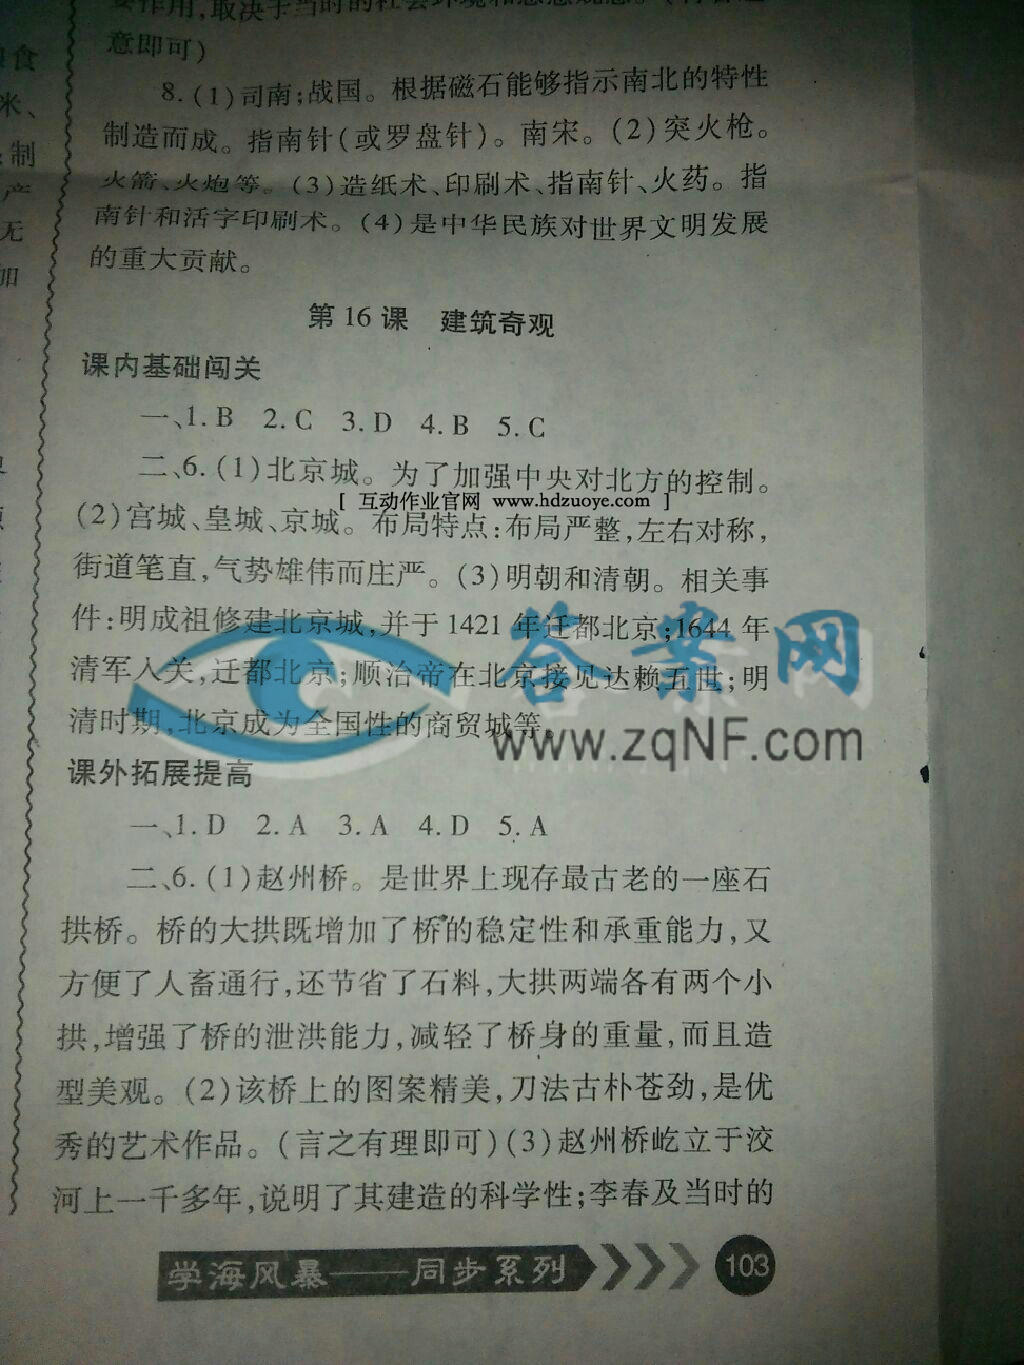 要作用,取决于当时的社会环境和思想观念。(
意即可)
8.(1)司南;战国。根据磁石能够指示南北的特性
制造而成。指南针(或罗盘针)。南宋。(2)突火枪。
火箭、火炮等。(3)造纸术、印刷术、指南针、火药。指
南针和活字印刷术。(4)是中华民族对世界文明发展
的重大贡献。
第16课 建筑奇观
课内基础闯关
一、1.B 2.C 3.D 4.B 5.C
二、6.(1)北京城。为了加强中央对北方的控制。
[ 互动作业官网 www.hdzuoye.com ]
(2)宫城、皇城、京城。布局特点:布局严整,左右对称,
街道笔直,气势雄伟而庄严。(3)明朝和清朝。相关事
件:明成祖修建北京城,并于1421年迁都北京;1644年
清军入关,迁都北京;顺治帝在北京接见达赖五世;明
清时期,北京成为全国性的商贸城等。
答案网
www.zqNF.com
课外拓展提高
一、1.D 2.A 3.A 4.D 5.A
二、6.(1)赵州桥。是世界上现存最古老的一座石
拱桥。桥的大拱既增加了桥的稳定性和承重能力,又
方便了人畜通行,还节省了石料,大拱两端各有两个小
拱,增强了桥的泄洪能力,减轻了桥身的重量,而且造
型美观。(2)该桥上的图案精美,刀法古朴苍劲,是优
秀的艺术作品。(言之有理即可)(3)赵州桥屹立于洨
河上一千多年,说明了其建造的科学性;李春及当时的
学海风暴——同步系列 103
食
米、
制
产
无
加